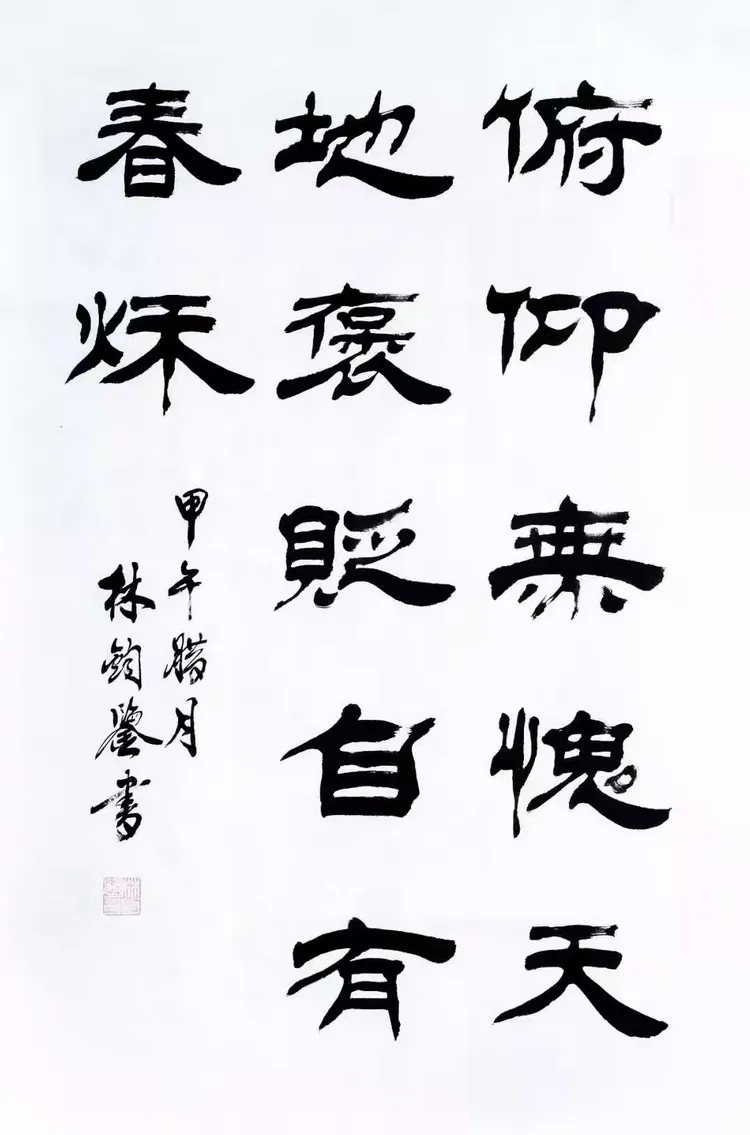 俯仰無愧天
地褒貶自有
春秌
甲午腊月
林鈞鑒書